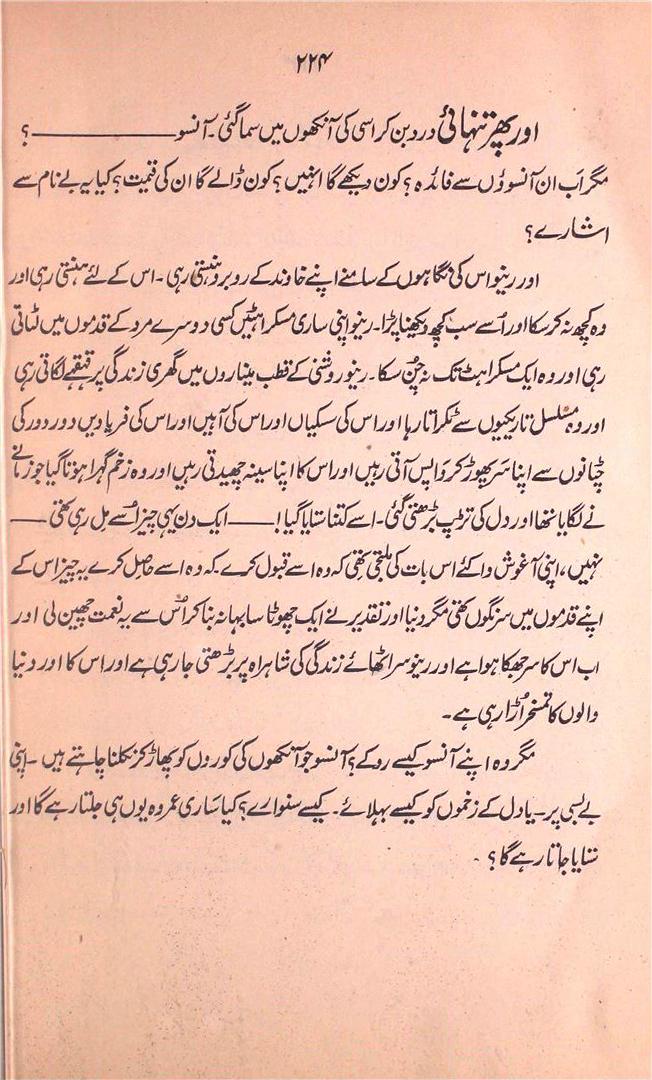 ۲۲۴
اور پھر تنہائی درد بن کر اسی کی آنکھوں میں سما گئی۔ آنسو ــــــــــــ ؟
مگر اَب ان آنسوؤں سے فائدہ؟ کون دیکھے گا انہیں؟ کون ڈالے گا ان کی قیمت؟ کیا یہ بے نام سے
اشارے؟
اور رینو اس کی نگاہوں کے سامنے اپنے خاوند کے روبرو ہنستی رہی۔ اس کے لئے ہنستی رہی اور
وہ کچھ نہ کر سکا اور اُسے سب کچھ دیکھنا پڑا۔ رینو اپنی ساری مسکراہٹیں کسی دوسرے مرد کے قدموں میں لٹاتی
رہی اور وہ ایک مسکراہٹ تک نہ چُن سکا۔ رینو روشنی کے قطب میناروں میں گھری زندگی پر قہقہے لگاتی رہی
اور وہ مسلسل تاریکیوں سے ٹکراتا رہا اور اس کی سسکیاں اور اس کی آہیں اور اس کی فریادیں دور دور کی
چٹانوں سے اپنا سر پھوڑ کر واپس آتی رہیں اور اس کا اپنا سینہ چھیدتی رہیں اور وہ زخم گہرا ہوتا گیا جو زمانے
نے لگایا تھا اور دل کی تڑپ بڑھتی گئی۔ اسے کتنا ستایا گیا! ــــ ایک دن یہی چیز اُسے مِل رہی تھی ــــ
نہیں، اپنی آغوش وا کئے اس بات کی ملتجی تھی کہ وہ اسے قبول کرے۔ کہ وہ اسے حاصل کرے یہ چیز اس کے
اپنے قدموں میں سرنگوں تھی مگر دنیا اور تقدیر نے ایک چھوٹا سا بہانہ بنا کر اُس سے یہ نعمت چھین لی اور
اب اس کا سر جھکا ہوا ہے اور رینو سر اٹھائے زندگی کی شاہراہ پر بڑھتی جا رہی ہے اور اس کا اور دنیا
والوں کا تمسخر اُڑا رہی ہے۔
مگر وہ اپنے آنسو کیسے روکے؟ آنسو جو آنکھوں کی کوروں کو پھاڑ کر نکلنا چاہتے ہیں۔ اپنی
بے بسی پر۔ یا دل کے زخموں کو کیسے بہلائے۔ کیسے سنوارے؟ کیا ساری عمر وہ یوں ہی جلتا رہے گا اور
ستایا جاتا رہے گا؟